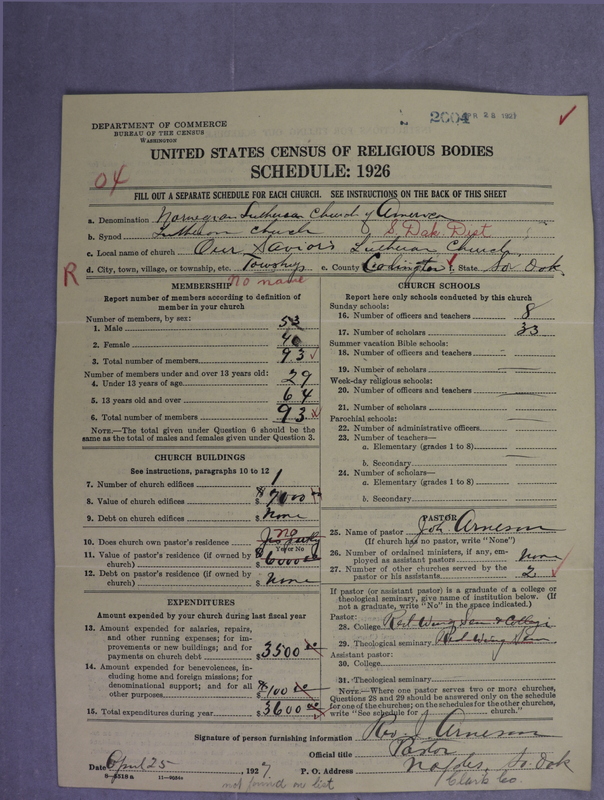 DEPARTMENT OF COMMERCE
BUREAU OF THE CENSUS
WASHINGTON
2604 APR 28 192
UNITED STATES CENSUS OF RELIGIOUS BODIES
SCHEDULE: 1926
04
FILL OUT A SEPARATE SCHEDULE FOR EACH CHURCH. SEE INSTRUCTIONS ON THE BACK OF THIS SHEET
a. Denomination Norwegian Lutheran Church of America
b. Synod Lutheran Church S. Dak. Dist.
c. Local name of church Our Savior's Lutheran Church
d. City, town, village, or township, etc. Township e. County Codington f. State So Dak.
R no name
MEMBERSHIP
Report number of members according to definition of
member in your church
Number of members, by sex:
1. Male 53
2. Female 40
3. Total number of members 93
Number of members under and over 13 years old:
4. Under 13 years of age 29
5. 13 years old and over 64
6. Total number of members 93
NOTE.—The total given under Question 6 should be the
same as the total of males and females given under Question 3.
CHURCH BUILDINGS
See instructions, paragraphs 10 to 12
7. Number of church edifices 1
8. Value of church edifices $7000
9. Debt on church edifices None
10. Does church own pastor's residence? no
Yes or No
11. Value of pastor's residence (if owned by
church) $6000
12. Debt on pastor's residence (if owned by
church) None
EXPENDITURES
Amount expended by your church during last fiscal year
13. Amount expended for salaries, repairs,
and other running expenses; for im-
provements or new buildings; and for
payments on church debt $3500
14. Amount expended for benevolences, in-
cluding home and foreign missions; for
denominational support; and for all
other purposes $100
15. Total expenditures during year $3600
CHURCH SCHOOLS
Report here only schools conducted by this church
Sunday schools:
16. Number of officers and teachers 8
17. Number of scholars 33
Summer vacation Bible schools:
18. Number of officers and teachers
19. Number of scholars
Week-day religious schools:
20. Number of officers and teachers
21. Number of scholars
Parochial schools:
22. Number of administrative officers
23. Number of teachers—
a. Elementary (grades 1 to 8)
b. Secondary
24. Number of scholars—
a. Elementary (grades 1 to 8)
b. Secondary
PASTOR
25. Name of pastor Joh Arneson
(If church has no pastor, write "None")
26. Number of ordained ministers, if any, em-
ployed as assistant pastors None
27. Number of other churches served by the
pastor or his assistants 2
If pastor (or assistant pastor) is a graduate of a college or
theological seminary, give name of institution below. (If
not a graduate, write "No" in the space indicated.)
Pastor:
28. College Red Wing Sem & College
29. Theological seminary Red Wing Sem
Assistant pastor:
30. College
31. Theological seminary
NOTE.—Where one pastor serves two or more churches,
Questions 28 and 29 should be answered only on the schedule
for one of the churches; on the schedules for the other churches,
write "See schedule for church."
Signature of person furnishing information Rev. J. Arneson
Official title Pastor
Date April 25, 1927. P. O. Address Naples, So. Dak
8-5518a 11-9084a
not found on list Clark Co.